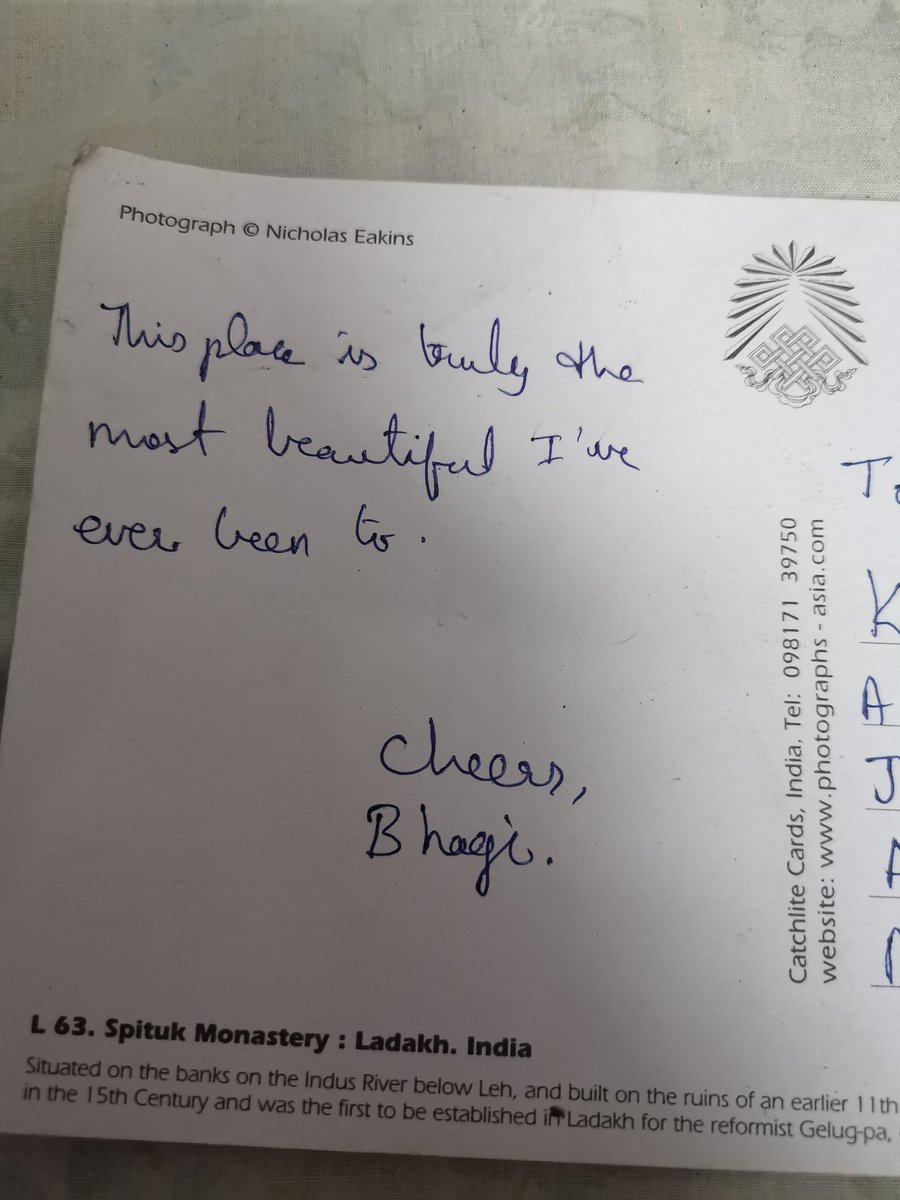 Photograph © Nicholas Eakins
This place is truly the
most beautiful I've
ever been to.
Cheers,
Bhagi.
Catchlite Cards, India, Tel: 098171 39750
website: www.photographs - asia.com
K
A
J
L 63. Spituk Monastery : Ladakh. India
Situated on the banks on the Indus River below Leh, and built on the ruins of an earlier 11th
in the 15th Century and was the first to be established in Ladakh for the reformist Gelug-pa,